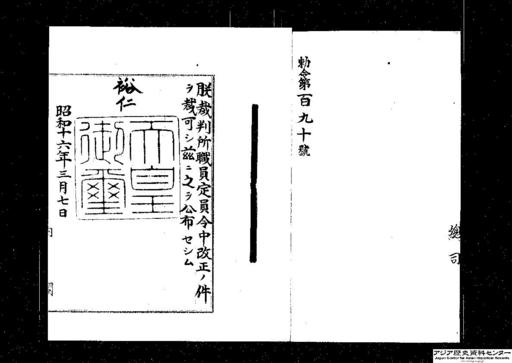 勅令第百九十號
總
司
朕裁判所職員定員令中改正ノ件
ヲ裁可シ茲ニ之ヲ公布セシム
裕仁
天皇
御璽
昭和十六年三月七日
内
閣
アジア歴史資料センター
Japan Center for Asian Historical Records